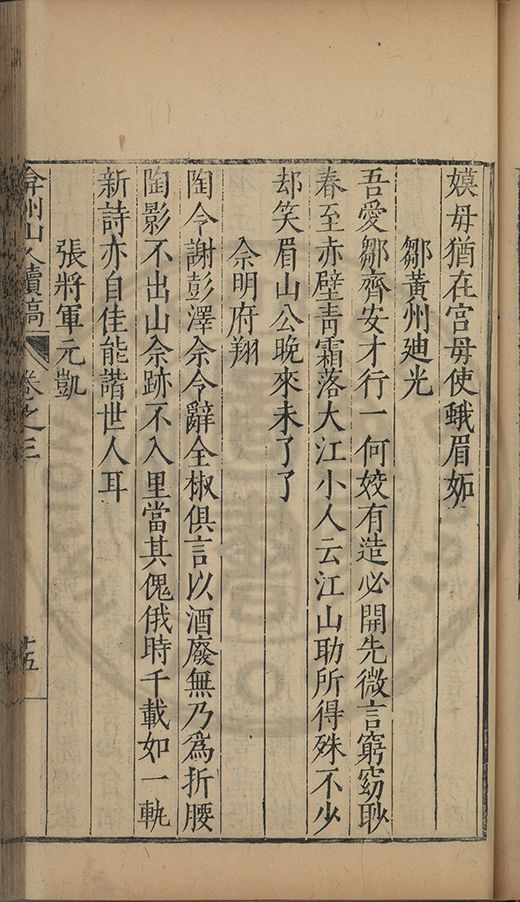 嫫毋猶在宫毋使蛾眉妒
鄒黃州廸光
吾愛鄒齊安才行一何姣有造必開先微言窮窈眇
春至赤壁靑霜落大江小人云江山助所得殊不少
却笑眉山公晚來未了了
佘明府翔
陶令謝彭澤佘令辭全椒俱言以酒廢無乃爲折腰
陶影不出山佘跡不入里當其傀俄時千載如一軌
新詩亦自佳能諧世人耳
張將軍元凱
弇州山人續稿 卷之三 廿五